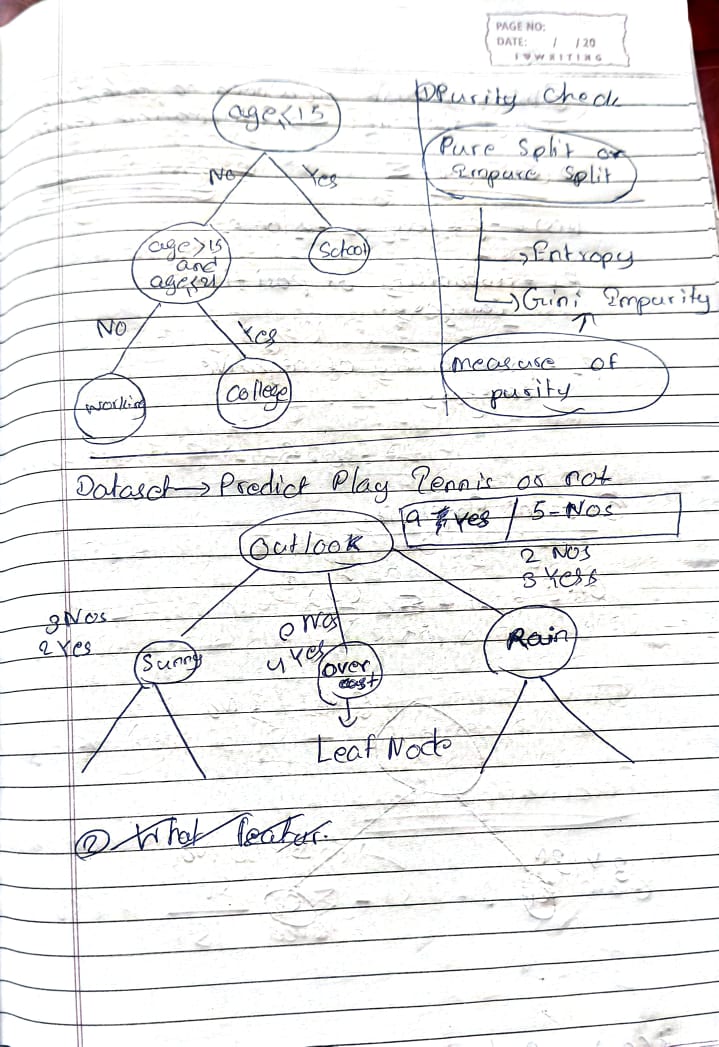 PAGE NO:
DATE: / / 20
I ♥ WRITING
age<15
No
Yes
age>15
and
age<21
School
NO
Yes
Working
College
① Purity Check
Pure Split or
Impure Split
→ Entropy
→ Gini Impurity
measure of
purity
Dataset → Predict Play Tennis or not
9 Yes / 5-NOS
Outlook
2 NOS
3 Yess
3 Nos
2 Yes
0 Nos
4 Yes
Sunny
Over
cast
Rain
Leaf Node
② What featur.